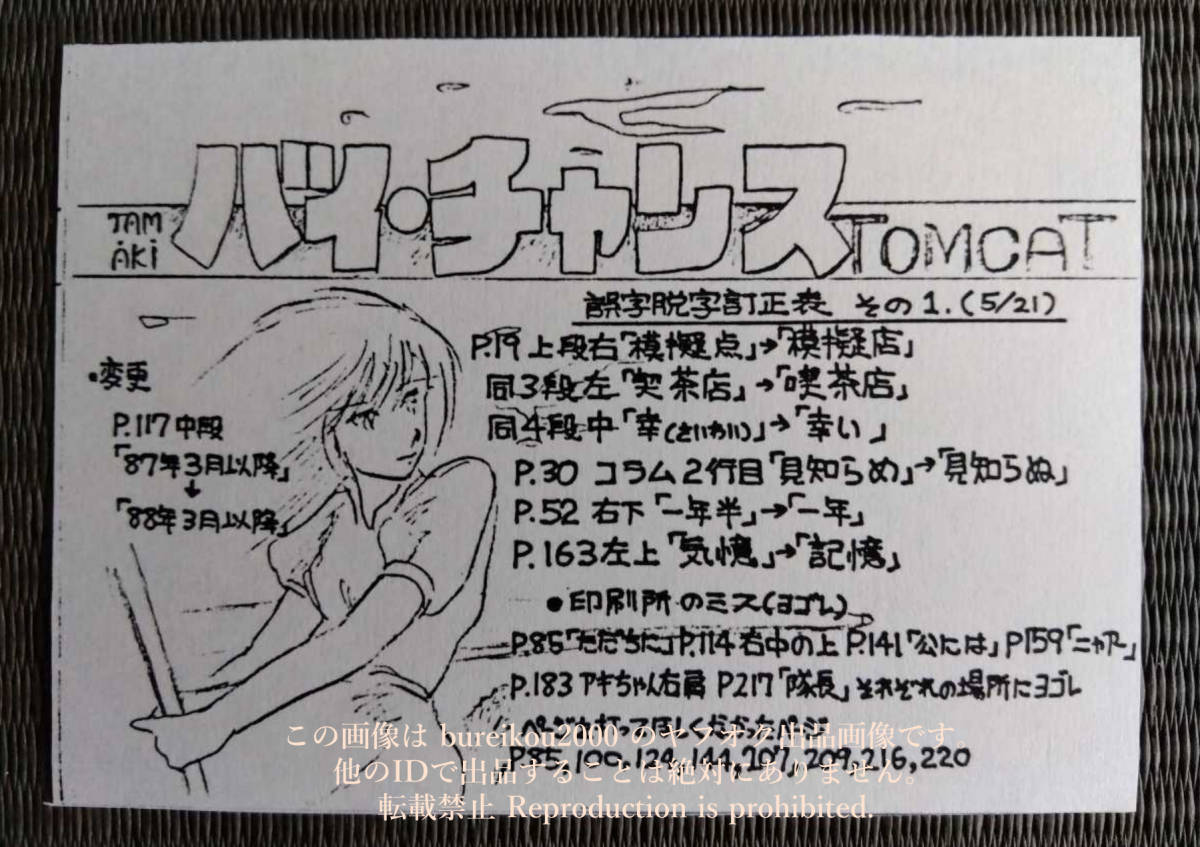 バイ・チャンス
TAM
AKI
TOMCAT
誤字脱字訂正表 その1.(5/21)
P.19 上段右「模擬点」→「模擬店」
同3段左「契茶店」→「喫茶店」
同4段中「幸(さいわい)」→「幸い」
P.30 コラム2行目「見知らめ」→「見知らぬ」
P.52 右下「一年半」→「一年」
P.163左上「気憶」→「記憶」
・変更
P.117中段
「87年3月以降」
↓
「88年3月以降」
●印刷所のミス(ヨゴレ)
P.85「ただちに」P.114右中の上 P.141「公には」P159「ニャアー」
P.183 アキちゃん右肩 P217「隊長」それぞれの場所にヨゴレ
ページを打ってほしくなかったページ
P.85,100,124,144,207,209,216,220
この画像は bureikou2000 のヤフオク出品画像です
他のIDで出品することは絶対にありません。
転載禁止 Reproduction is prohibited.